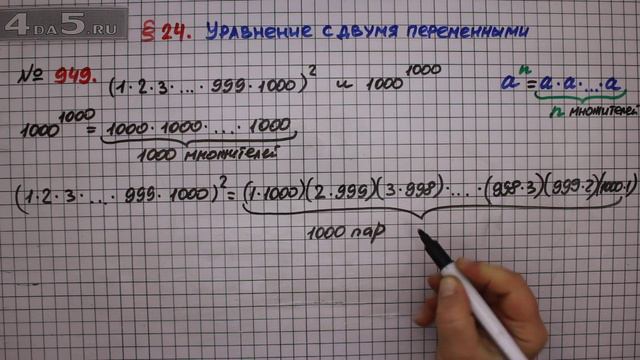 4DA5.RU
§ 24. Уравнение с двумя переменными
№ 949. (1·2·3·...·999·1000)² и 1000¹⁰⁰⁰
aⁿ = a·a·...·a
n множителей
1000¹⁰⁰⁰ = 1000·1000·...·1000
1000 множителей
(1·2·3·...·999·1000)² = (1·1000)(2·999)(3·998)·...·(998·3)(999·2)(1000·1)
1000 пар